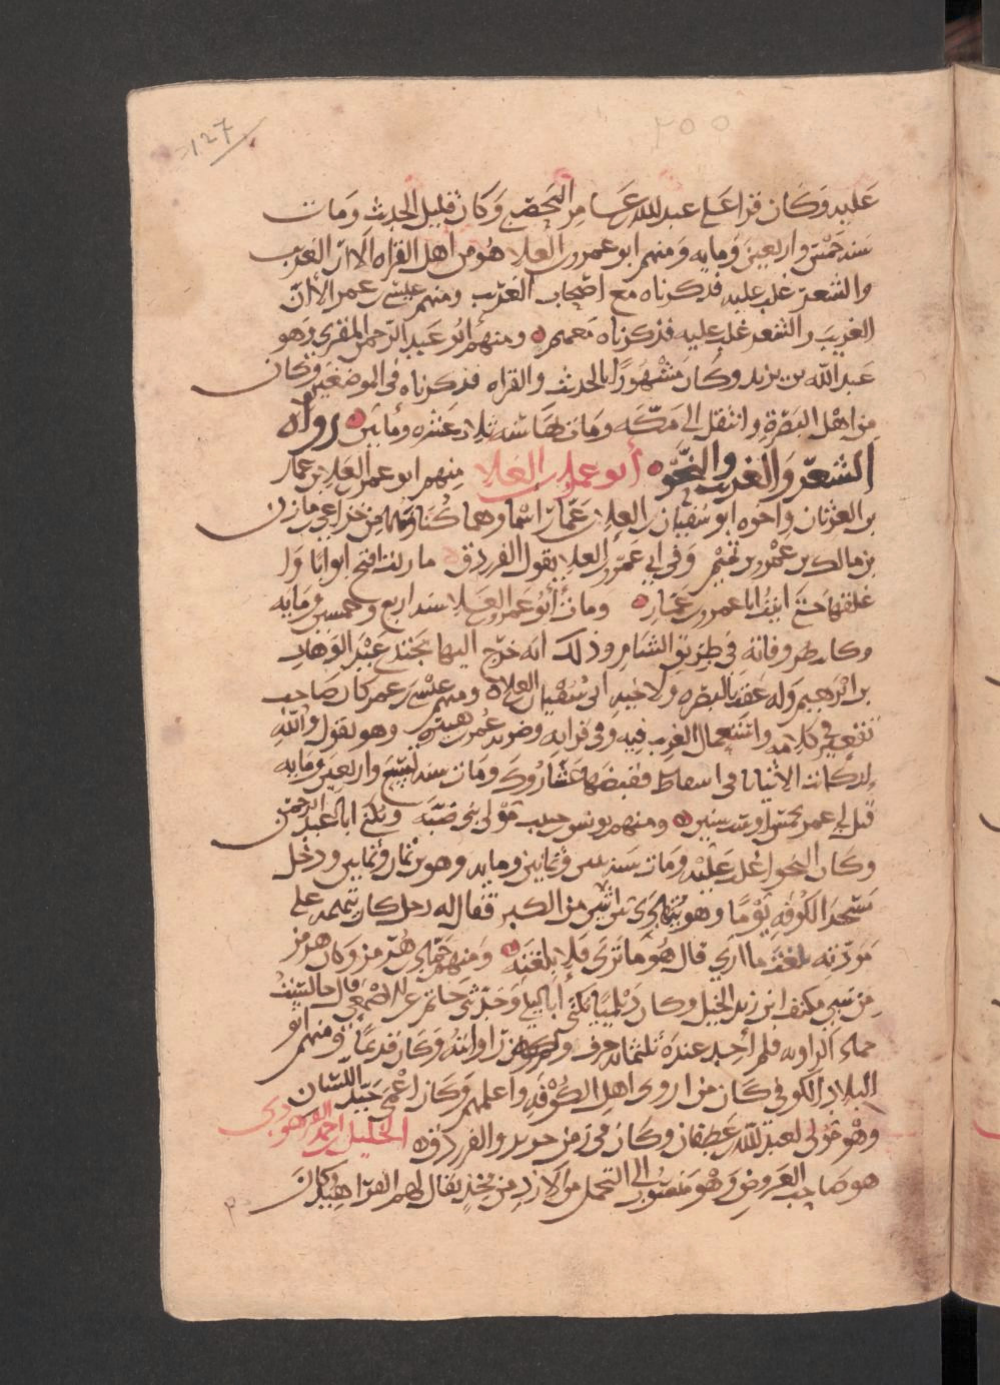 127
عليه وكان قرا على عبد الله عامر اليحصبي وكان قليل الحديث ومات
سنة خمس واربعين ومايه ومنهم ابو عمرو بن العلا هو من اهل القراه الا ان الغريب
والشعر غلب عليه فذكرناه مع اصحاب الغريب ومنهم عيسى بن عمر الا ان
الغريب والشعر غلب عليه فذكرناه معهم ومنهم ابو عبد الرحمن المقري وهو
عبد الله بن يزيد وكان مشهورا بالحديث والقراه فذكرناه في الموضعين وكان
من اهل البصرة وانتقل الى مكه ومات بها سنه ثلاث عشره ومأيتين رواه
الشعر والغريب والنحو أبو عمرو بن العلا منهم ابو عمرو العلا بن عمار
بن العريان واخوه ابو سفيان بن العلا بن عمار اسماوهما كناهما من خزاعي مازن
بن مالك بن عمرو بن تميم وفي ابي عمرو بن العلا يقول الفرزدق ما زلت افتح ابوابا و
اغلقها حتى اتيت ابا عمرو بن عمار ومات أبو عمرو العلا سنه اربع وخمسين ومايه
وكانت وفاته في طريق الشام وذلك انه خرج اليها يجتدي عبد الوهاب
بن ابرهيم وله عقب بالبصره ولاخيه ابي سفيان العلا ومنهم عيسى بن عمر كان صاحب
تقعير في كلامه واستعمال الغريب فيه وفي قراءته وضربه عمر بن هبيره وهو يقول والله
ان كانت الا اثيابا في اسفاط فقبضها عشاروك ومات سنه تسع واربعين ومايه
قبل ابي عمرو بخمس او ست سنين ومنهم يونس بن حبيب مولى بني ضبه ويكنى ابا عبد الرحمن
وكان النحو اغلب عليه ومات سنه وثمانين ومايه وهو بن ثمان وثمانين ودخل
مسجد الكوفه يوما وهو يتهادى بين اثنين من الكبر فقال له رجل كان يتهمه على
مودته بلغت ما ارى قال هو ما ترى فلا بلغته ومنهم حماد بن هرمز وكان هرمز
من سبي مكنف ابن زيد الخيل وكان ديلميا يكنى أبا ليلى وحدثني حاتم عن الاصمعي قال جالست
حماد الراويه فلم أجد عنده ثلثمائه حرف ولم ارض راوايته وكان قديما ومنهم ابو
البلاد الكوفي كان من اروى اهل الكوفه واعلمهم وكان اعمى جيد اللسان
وهو مولى لعبد الله بن غطفان وكان في زمن جرير والفرزدق الخليل بن احمد الفرهودي
هو صاحب العروض وهو منسوب الى من الازد من فخذ يقال لهم الفراهيد وكان